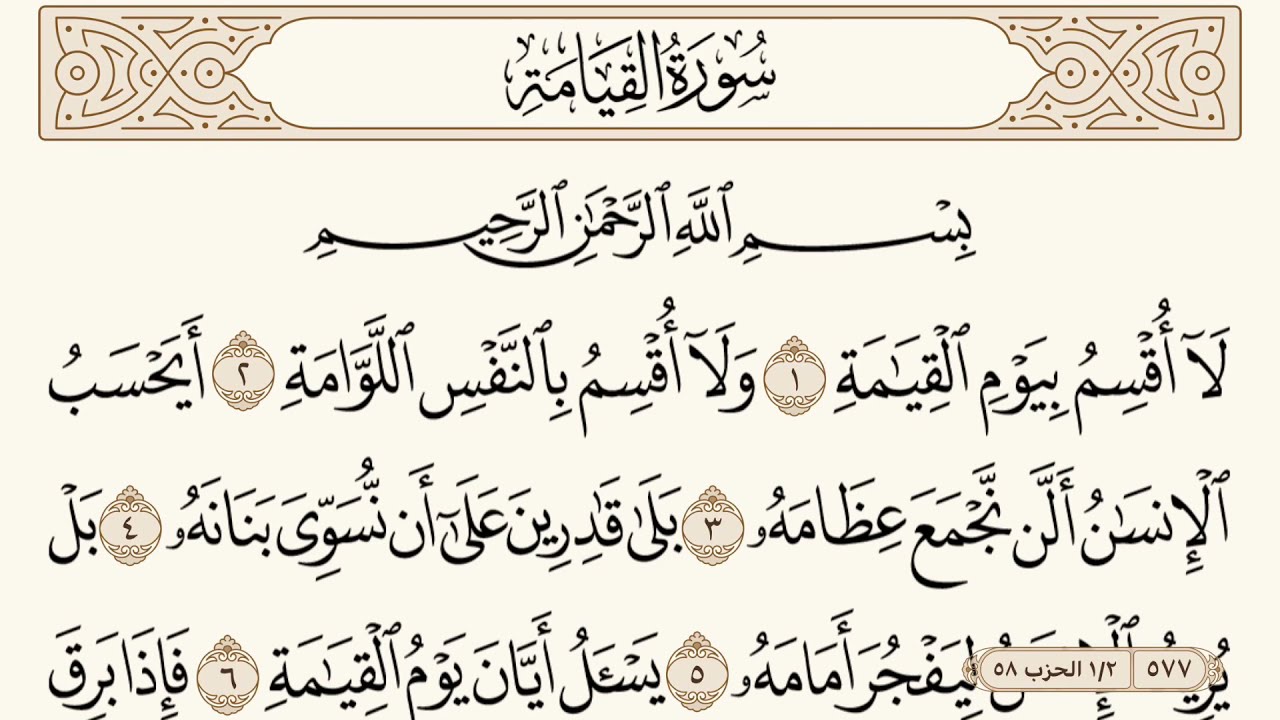 سُورَةُ القِيَامَةِ
بِسْمِ ٱللَّهِ ٱلرَّحْمَٰنِ ٱلرَّحِيمِ
لَآ أُقْسِمُ بِيَوْمِ ٱلْقِيَٰمَةِ ١ وَلَآ أُقْسِمُ بِٱلنَّفْسِ ٱللَّوَّامَةِ ٢ أَيَحْسَبُ
ٱلْإِنسَٰنُ أَلَّن نَّجْمَعَ عِظَامَهُۥ ٣ بَلَىٰ قَٰدِرِينَ عَلَىٰٓ أَن نُّسَوِّىَ بَنَانَهُۥ ٤ بَلْ
يُرِيدُ ٱلْإِنسَٰنُ لِيَفْجُرَ أَمَامَهُۥ ٥ يَسْـَٔلُ أَيَّانَ يَوْمُ ٱلْقِيَٰمَةِ ٦ فَإِذَا بَرِقَ
٥٧٧ ١/٢ الحزب ٥٨